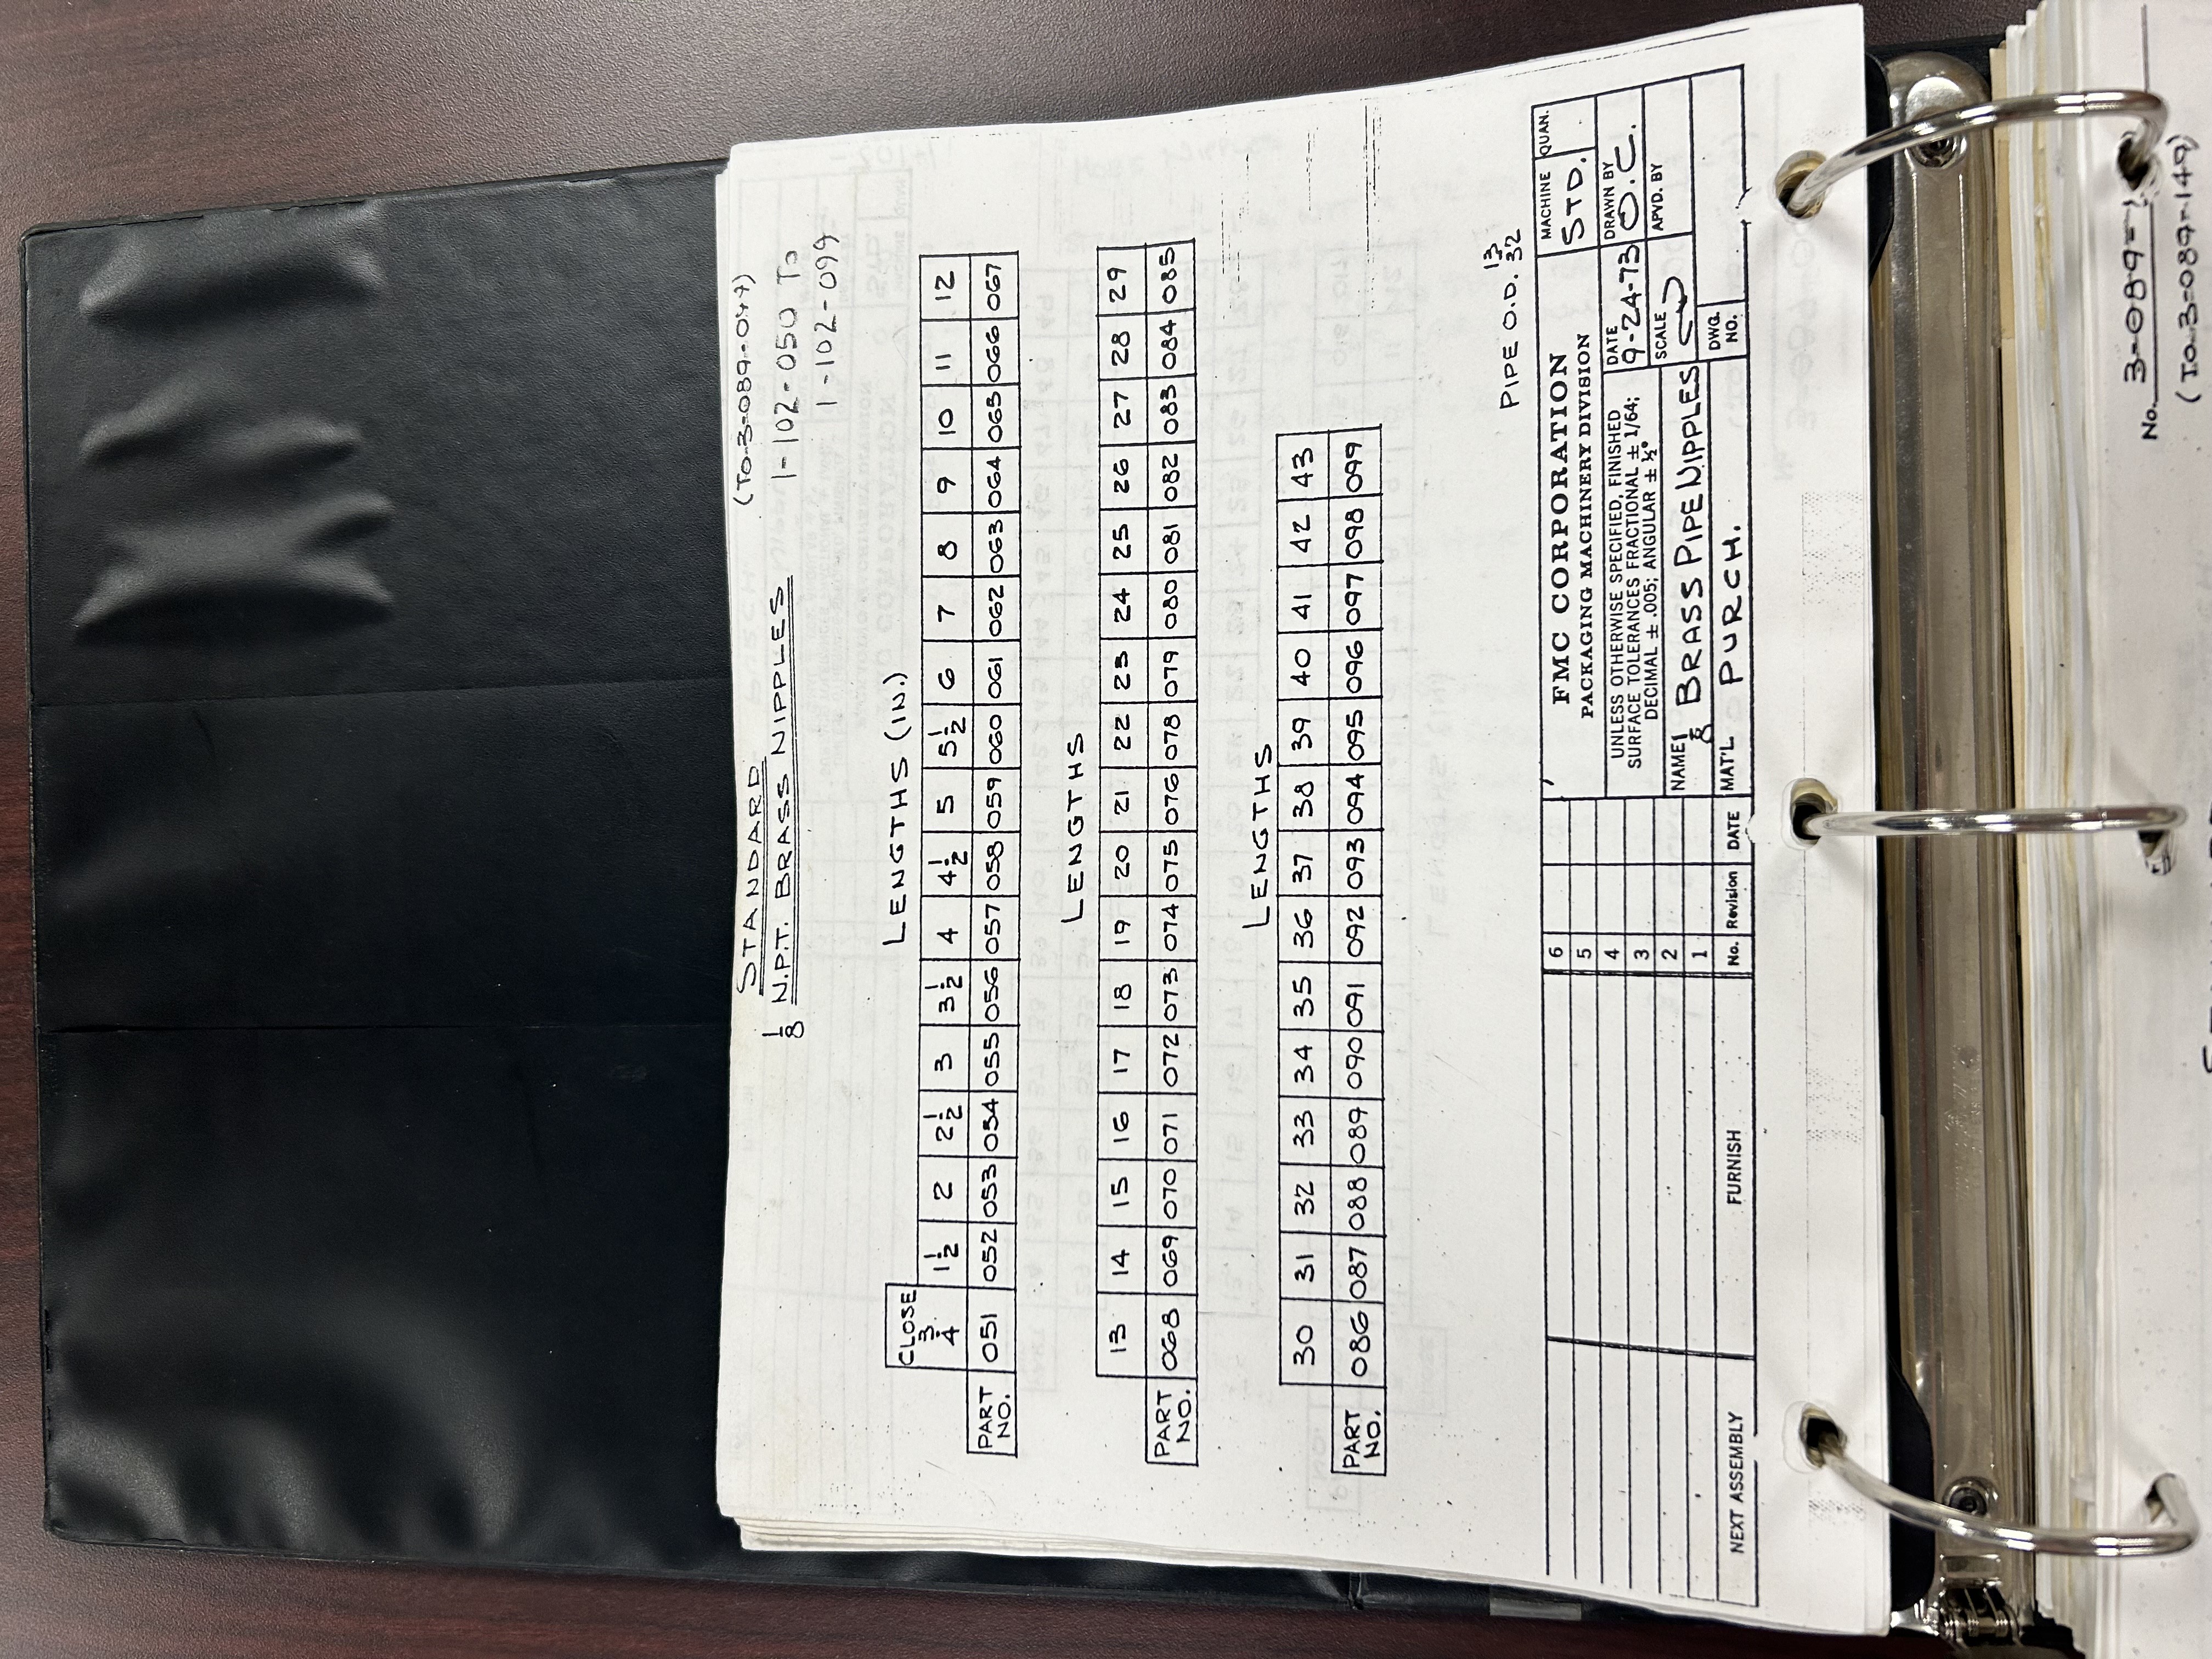 STANDARD
1/8 N.P.T. BRASS NIPPLES
1-102-050 TO
1-102-099
LENGTHS (IN.)
CLOSE 3/4 1 1/2 2 2 1/2 3 3 1/2 4 4 1/2 5 5 1/2 6 7 8 9 10 11 12
PART NO. 051 052 053 054 055 056 057 058 059 060 061 062 063 064 065 066 067
LENGTHS
13 14 15 16 17 18 19 20 21 22 23 24 25 26 27 28 29
PART NO. 068 069 070 071 072 073 074 075 076 078 079 080 081 082 083 084 085
LENGTHS
30 31 32 33 34 35 36 37 38 39 40 41 42 43
PART NO. 086 087 088 089 090 091 092 093 094 095 096 097 098 099
PIPE O.D. 13/32
6
5
4
3
2
1
NEXT ASSEMBLY FURNISH No. Revision DATE
FMC CORPORATION
PACKAGING MACHINERY DIVISION
MACHINE STD. QUAN.
UNLESS OTHERWISE SPECIFIED, FINISHED
SURFACE TOLERANCES FRACTIONAL ± 1/64;
DECIMAL ± .005; ANGULAR ± ½°
DATE 9-24-73
DRAWN BY O.C.
NAME 1/8 BRASS PIPE NIPPLES
SCALE
APVD. BY
MAT'L. PURCH.
DWG. NO.
No. 3-089-
(TO 3-089-149)